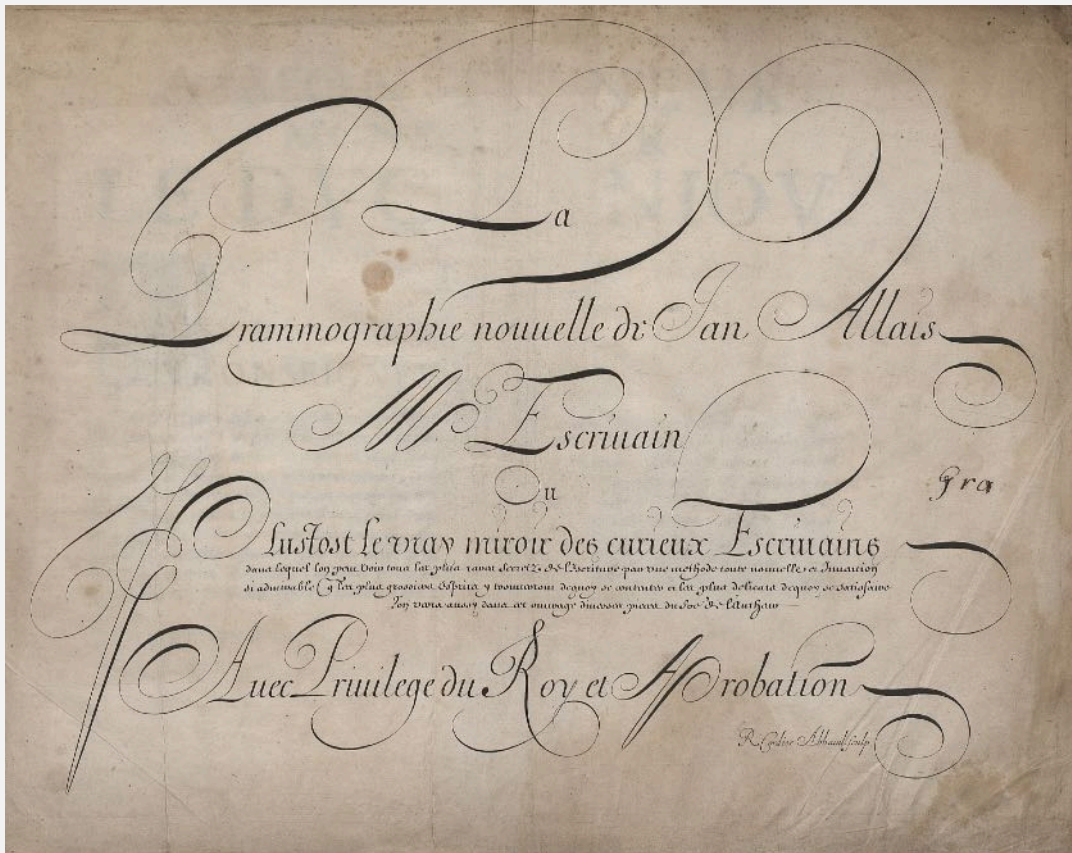 La
Grammographie nouuelle de Jan Allais
Me Escriuain
Ou
Plustost le vray miroir des curieux Escriuains
dans lequel lon peut voir tous les plus rares secretz de l'escriture par vne methode toute nouuelle et Inuention
si admirable q les plus grossiers esprits y trouueront dequoy se contenter et les plus delicats dequoy se satisfaire
lon verra aussy dans cet ouurage diuerses pieces du de l'Autheur
Auec Priuilege du Roy et Aprobation
sculp
gra